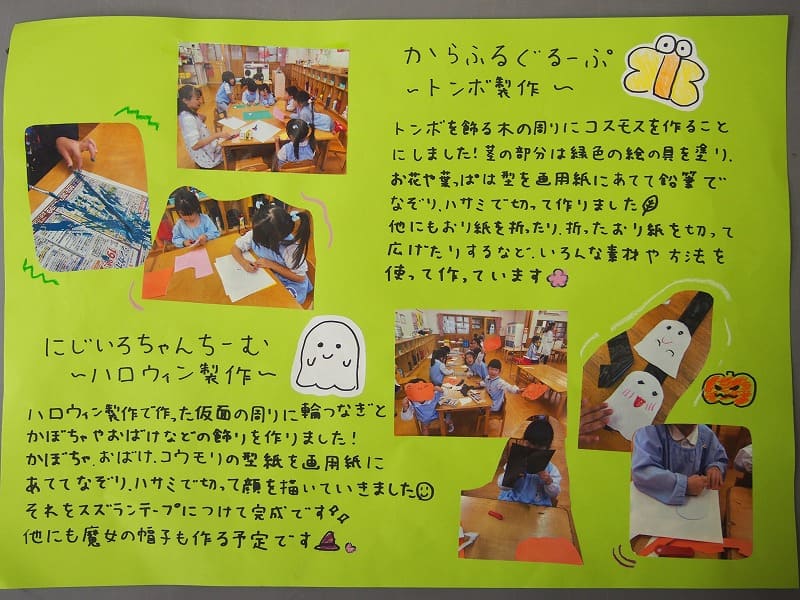 からふるぐるーぷ
～トンボ製作～
トンボを飾る木の周りにコスモスを作ること
にしました!茎の部分は緑色の絵の具を塗り、
お花や葉っぱは型を画用紙にあてて鉛筆で
なぞり、ハサミで切って作りました
他にもおり紙を折ったり、折ったおり紙を切って
広げたりするなど、いろんな素材や方法を
使って作っています
にじいろちゃんちーむ
～ハロウィン製作～
ハロウィン製作で作った仮面の周りに輪つなぎと
かぼちゃやおばけなどの飾りを作りました!
かぼちゃ、おばけ、コウモリの型紙を画用紙に
あててなぞり、ハサミで切って顔を描いていきました
それをスズランテープにつけて完成です
他にも魔女の帽子も作る予定です